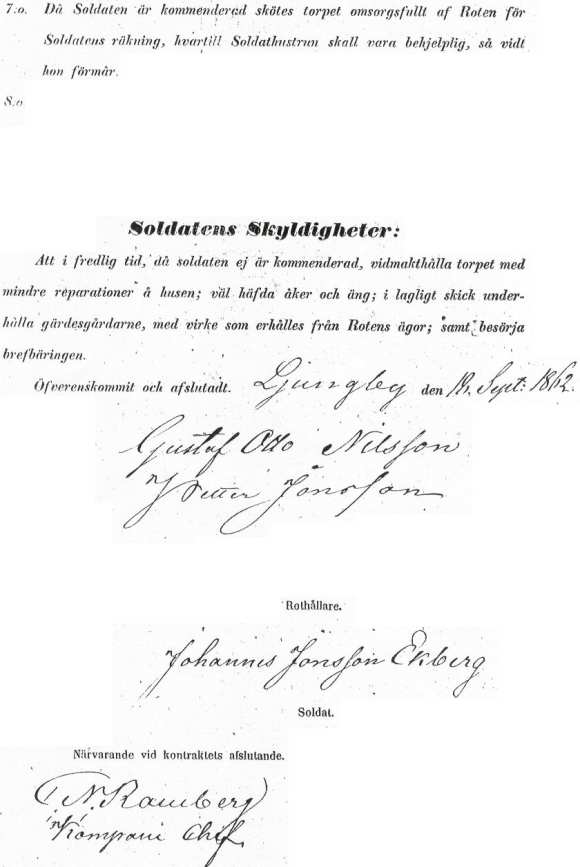 7.o. Då Soldaten är kommenderad skötes torpet omsorgsfullt af Roten för
Soldatens räkning, hvartill Soldathustrun skall vara behjelplig, så vidt
hon förmår.
8.o
Soldatens Skyldigheter:
Att i fredlig tid, då soldaten ej är kommenderad, vidmakthålla torpet med
mindre reparationer å husen; väl häfda åker och äng; i lagligt skick under-
hålla gärdesgårdarne, med virke som erhålles från Rotens ägor; samt besörja
brefbäringen.
Öfverenskommit och afslutadt. Ljungby den Sept: 1862.
Gustaf Otto Nilsson
Petter Jönsson
Rothållare.
Johannis Jönsson Ekberg
Soldat.
Närvarande vid kontraktets afslutande.
N. Ramberg
Kompani Chef